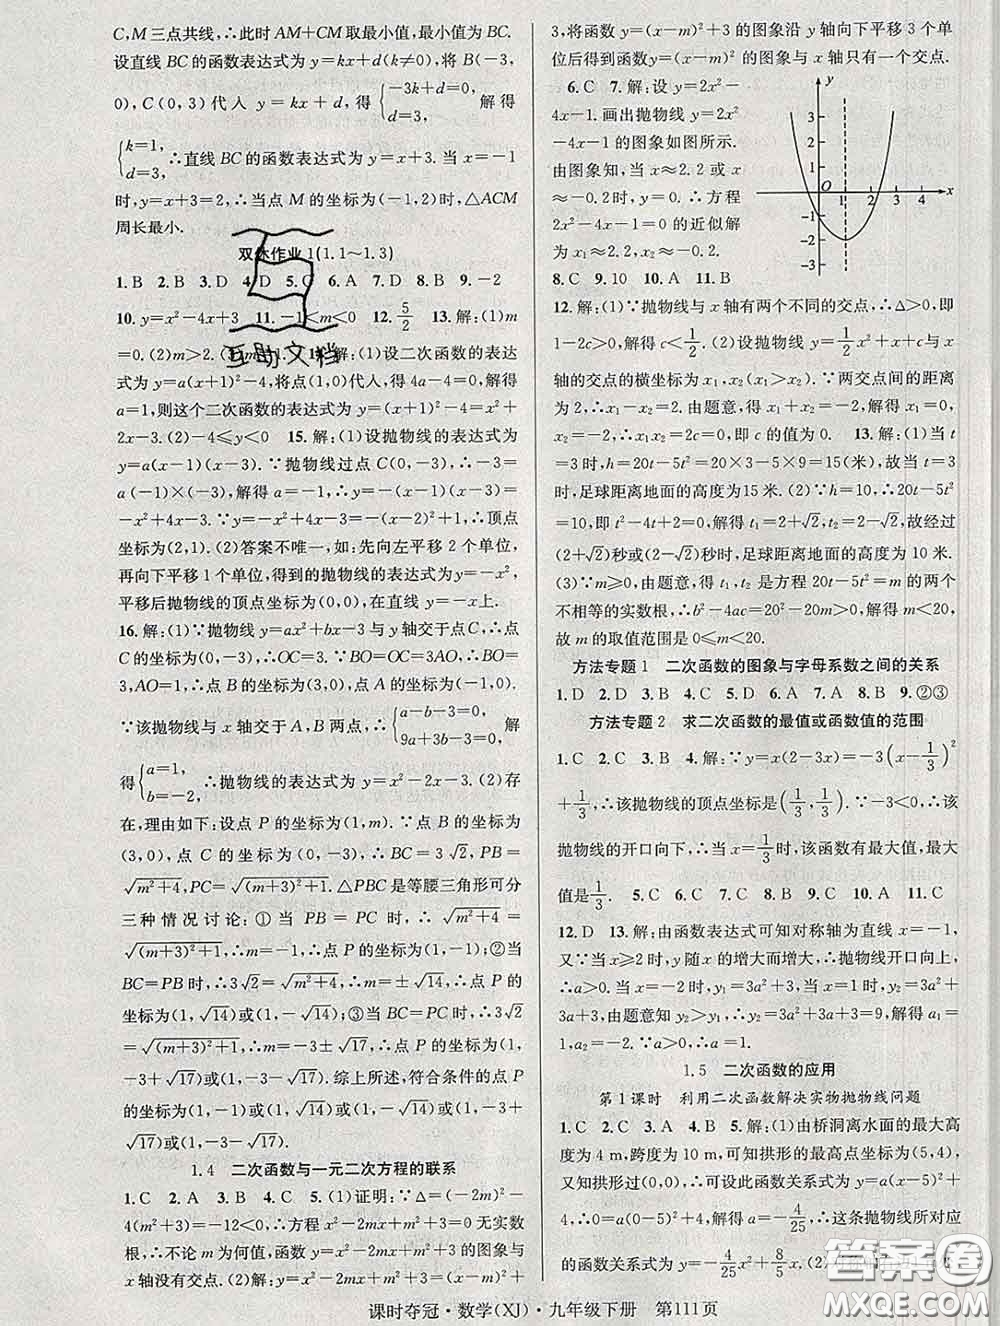 C,M三点共线,∴此时AM+CM取最小值,最小值为BC.
设直线BC的函数表达式为y=kx+d(k≠0),将B(-3,
0),C(0,3)代入y=kx+d,得{-3k+d=0, d=3, 解得
{k=1, d=3, ∴直线BC的函数表达式为y=x+3.当x=-1
时,y=x+3=2,∴当点M的坐标为(-1,2)时,△ACM
周长最小.
双休作业1(1.1~1.3)
1.B 2.B 3.D 4.D 5.C 6.A 7.D 8.B 9.-2
10.y=x²-4x+3 11.-1<m<0 12.5/2 13.解:(1)m
=0.(2)m>2. 解:(1)设二次函数的表达
式为y=a(x+1)²-4,将点(1,0)代人,得4a-4=0,解得
a=1,则这个二次函数的表达式为y=(x+1)²-4=x²+
2x-3.(2)-4≤y<0 15.解:(1)设抛物线的表达式为
y=a(x-1)(x-3).∵抛物线过点C(0,-3),∴-3=
a(-1)×(-3),解得a=-1,∴y=-(x-1)(x-3)=
-x²+4x-3.∵y=-x²+4x-3=-(x-2)²+1,∴顶点
坐标为(2,1).(2)答案不唯一,如:先向左平移2个单位,
再向下平移1个单位,得到的抛物线的表达式为y=-x²,
平移后抛物线的顶点坐标为(0,0),在直线y=-x上.
16.解:(1)∵抛物线y=ax²+bx-3与y轴交于点C,∴点
C的坐标为(0,-3),∴OC=3.∵BO=OC=3AO,∴BO=
3,AO=1,∴点B的坐标为(3,0),点A的坐标为(-1,0).
∵该抛物线与x轴交于A,B两点,∴{a-b-3=0, 9a+3b-3=0, 解
得{a=1, b=-2, ∴抛物线的表达式为y=x²-2x-3.(2)存
在,理由如下:设点P的坐标为(1,m).∵点B的坐标为
(3,0),点C的坐标为(0,-3),∴BC=3√2,PB=
√(m²+4),PC=√((m+3)²+1).△PBC是等腰三角形可分
三种情况讨论:①当PB=PC时,∴√(m²+4)=
√((m+3)²+1),∴m=-1,∴点P的坐标为(1,-1);②当
BC=PB时,∴3√2=√(m²+4),∴m=±√14,∴点P的坐标
为(1,√14)或(1,-√14);③当BC=PC时,∴3√2=
√((m+3)²+1),∴m=-3±√17,∴点P的坐标为(1,
-3+√17)或(1,-3-√17).综上所述,符合条件的点P
的坐标为(1,-1)或(1,√14)或(1,-√14)或(1,-3+
√17)或(1,-3-√17).
1.4 二次函数与一元二次方程的联系
1.C 2.A 3.C 4.C 5.(1)证明:∵Δ=(-2m)²-
4(m²+3)=-12<0,∴方程x²-2mx+m²+3=0无实数
根,∴不论m为何值,函数y=x²-2mx+m²+3的图象与
x轴没有交点.(2)解:y=x²-2mx+m²+3=(x-m)²+
3,将函数y=(x-m)²+3的图象沿y轴向下平移3个单
位后得到函数y=(x-m)²的图象与x轴只有一个交点.
6.C 7.解:设y=2x²-
4x-1.画出抛物线y=2x²
-4x-1的图象如图所示.
由图象知,当x≈2.2或x
≈-0.2时,y=0.∴方程
2x²-4x-1=0的近似解
为x₁≈2.2,x₂≈-0.2.
y
3
2
1
O
1 2 3 4 x
-1
-2
-3
8.C 9.10 10.A 11.B
12.解:(1)∵抛物线与x轴有两个不同的交点,∴Δ>0,即
1-2c>0,解得c<1/2.(2)设抛物线y=1/2x²+x+c与x
轴的交点的横坐标为x₁,x₂(x₁>x₂).∵两交点间的距离
为2,∴x₁-x₂=2.由题意,得x₁+x₂=-2,解得x₁=0,
x₂=-2,∴x₁x₂=2c=0,即c的值为0. 13.解:(1)当t
=3时,h=20t-5t²=20×3-5×9=15(米),故当t=3
时,足球距离地面的高度为15米.(2)∵h=10,∴20t-5t²
=10,即t²-4t+2=0,解得t=2+√2或t=2-√2,故经过
(2+√2)秒或(2-√2)秒时,足球距离地面的高度为10米.
(3)∵m≥0,由题意,得t₁,t₂是方程20t-5t²=m的两个
不相等的实数根,∴b²-4ac=20²-20m>0,解得m<20,
故m的取值范围是0≤m<20.
方法专题1 二次函数的图象与字母系数之间的关系
1.D 2.D 3.B 4.C 5.D 6.D 7.A 8.B 9.②③
方法专题2 求二次函数的最值或函数值的范围
1.C 2.C 3.B 4.解:∵y=x(2-3x)=-3(x-1/3)²
+1/3,∴该抛物线的顶点坐标是(1/3,1/3).∵-3<0,∴该
抛物线的开口向下,∴当x=1/3时,该函数有最大值,最大
值是1/3. 5.C 6.C 7.D 8.B 9.B 10.C 11.C
12.D 13.解:由函数表达式可知对称轴为直线x=-1,
又∵当x≥2时,y随x的增大而增大,∴抛物线开口向上,
∴a>0.当x=-2时,y₁=3a²+3,当x=1时,y₂=3a+
3a²+3=9,解得a₁=1,
a₂=-2.∵a>0,∴a=1.
1.5 二次函数的应用
第1课时 利用二次函数解决实物抛物线问题
1.C 2.C 3.A 4.B 5.解:(1)由桥洞离水面的最大高
度为4 m,跨度为10 m,可知拱形的最高点坐标为(5,4),
又知拱形过(0,0),∴可设此函数关系式为y=a(x-5)²+
4,∴0=a(0-5)²+4,解得a=-4/25,∴这条抛物线所对应
的函数关系式为y=-4/25x²+8/5x.
课时夺冠·数学(XJ)·九年级下册 第111页
互助文档
答案圈
MXQE.COM